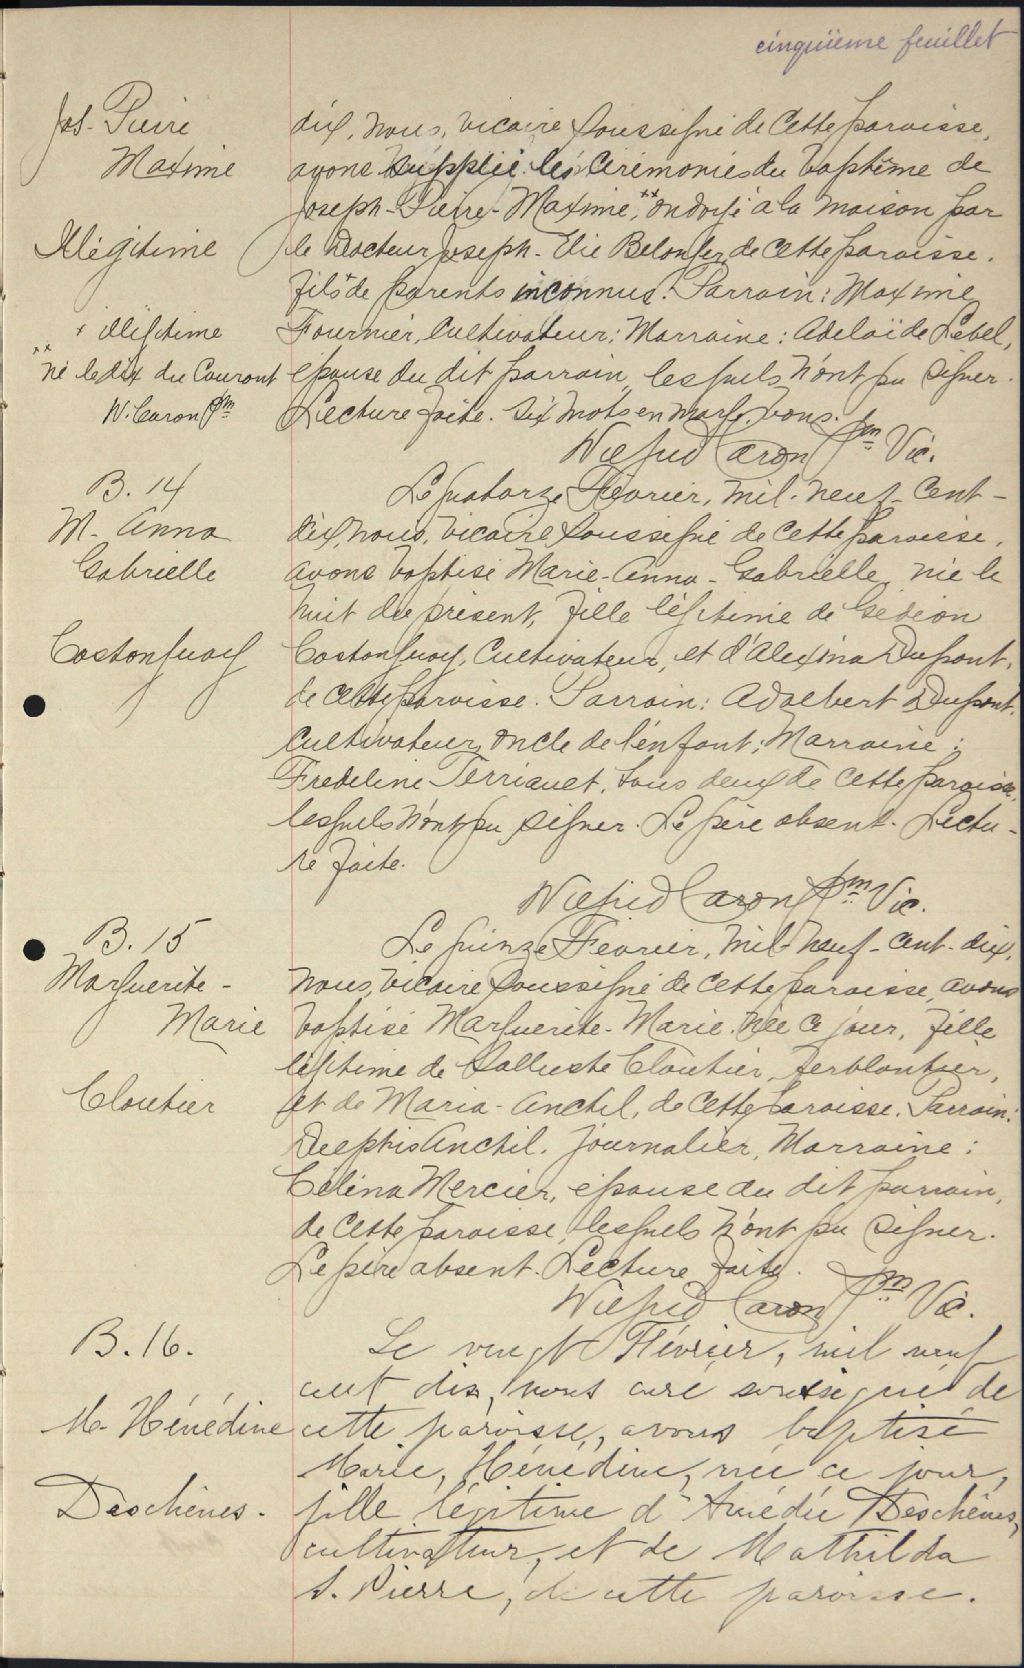 cinquième feuillet
Jos- Pierre
Maxime
Illégitime
x illégitime
xx né le dix du Courant
W. Caron Ptre
dix, nous, vicaire soussigné de cette paroisse,
avons supplié les Cérémonies du baptême de
Joseph-Pierre-Maxime, xx ondoyé à la maison par
le Docteur Joseph-Elie Belanger de cette paroisse.
fils x de parents inconnus. Parrain: Maxime
Fournier, Cultivateur; Marraine: Adelaïde Lebel,
épouse du dit parrain, lesquels n'ont pu signer.
Lecture faite. Six mots en marge bons.
Wilfrid Caron Ptre Vic.
B. 14
M- Anna
Gabrielle
Castonguay
Le quatorze Février, mil-neuf-cent-
dix, nous, vicaire soussigné de cette paroisse,
avons baptisé Marie-Anna-Gabrielle, née le
huit du présent, fille légitime de Gédéon
Castonguay, Cultivateur, et d'Alexina Dupont,
de cette paroisse. Parrain: Adalbert Dupont,
Cultivateur, oncle de l'enfant; Marraine:
Fredeline Terriault, tous deux de cette paroisse,
lesquels n'ont pu signer. Le père absent. Lectu-
re faite.
Wilfrid Caron Ptre Vic.
B. 15
Marguerite-
Marie
Cloutier
Le quinze Février, mil-neuf-cent-dix,
nous, vicaire soussigné de cette paroisse, avons
baptisé Marguerite-Marie, née ce jour, fille
légitime de Salluste Cloutier, ferblantier,
et de Maria-Anctil, de cette paroisse. Parrain:
Anctil. journalier, Marraine:
Célina Mercier, épouse du dit parrain,
de cette paroisse, lesquels n'ont pu signer.
Le père absent. Lecture faite.
Wilfrid Caron Ptre Vic.
B. 16.
M- Hénédine
Deschênes.
Le vingt Février, mil neuf
cent dix, nous curé soussigné de
cette paroisse, avons baptisé
Marie, Hénédine, née ce jour,
fille légitime d'Amédée Deschênes,
cultivateur, et de Mathilda
S. Pierre, de cette paroisse.